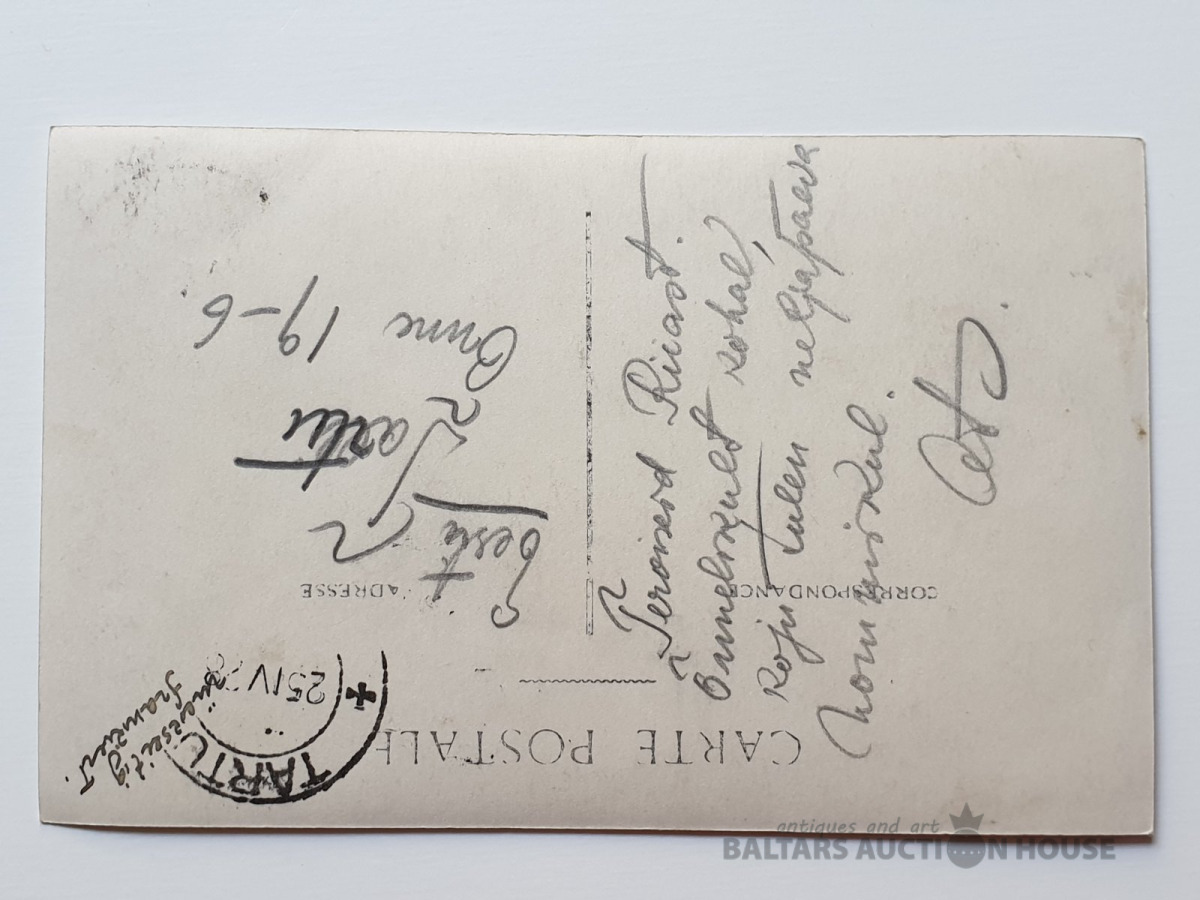 CARTE POSTALE
CORRESPONDANCE
ADRESSE
Tervised Riiast.
Õnnelikult kohal,
koju tulen neljapäeva
hommikul.
Ats.
Eesti
Tartu
Õnne 19-6.
TARTU
25 IV
antiques and art
BALTARS AUCTION HOUSE